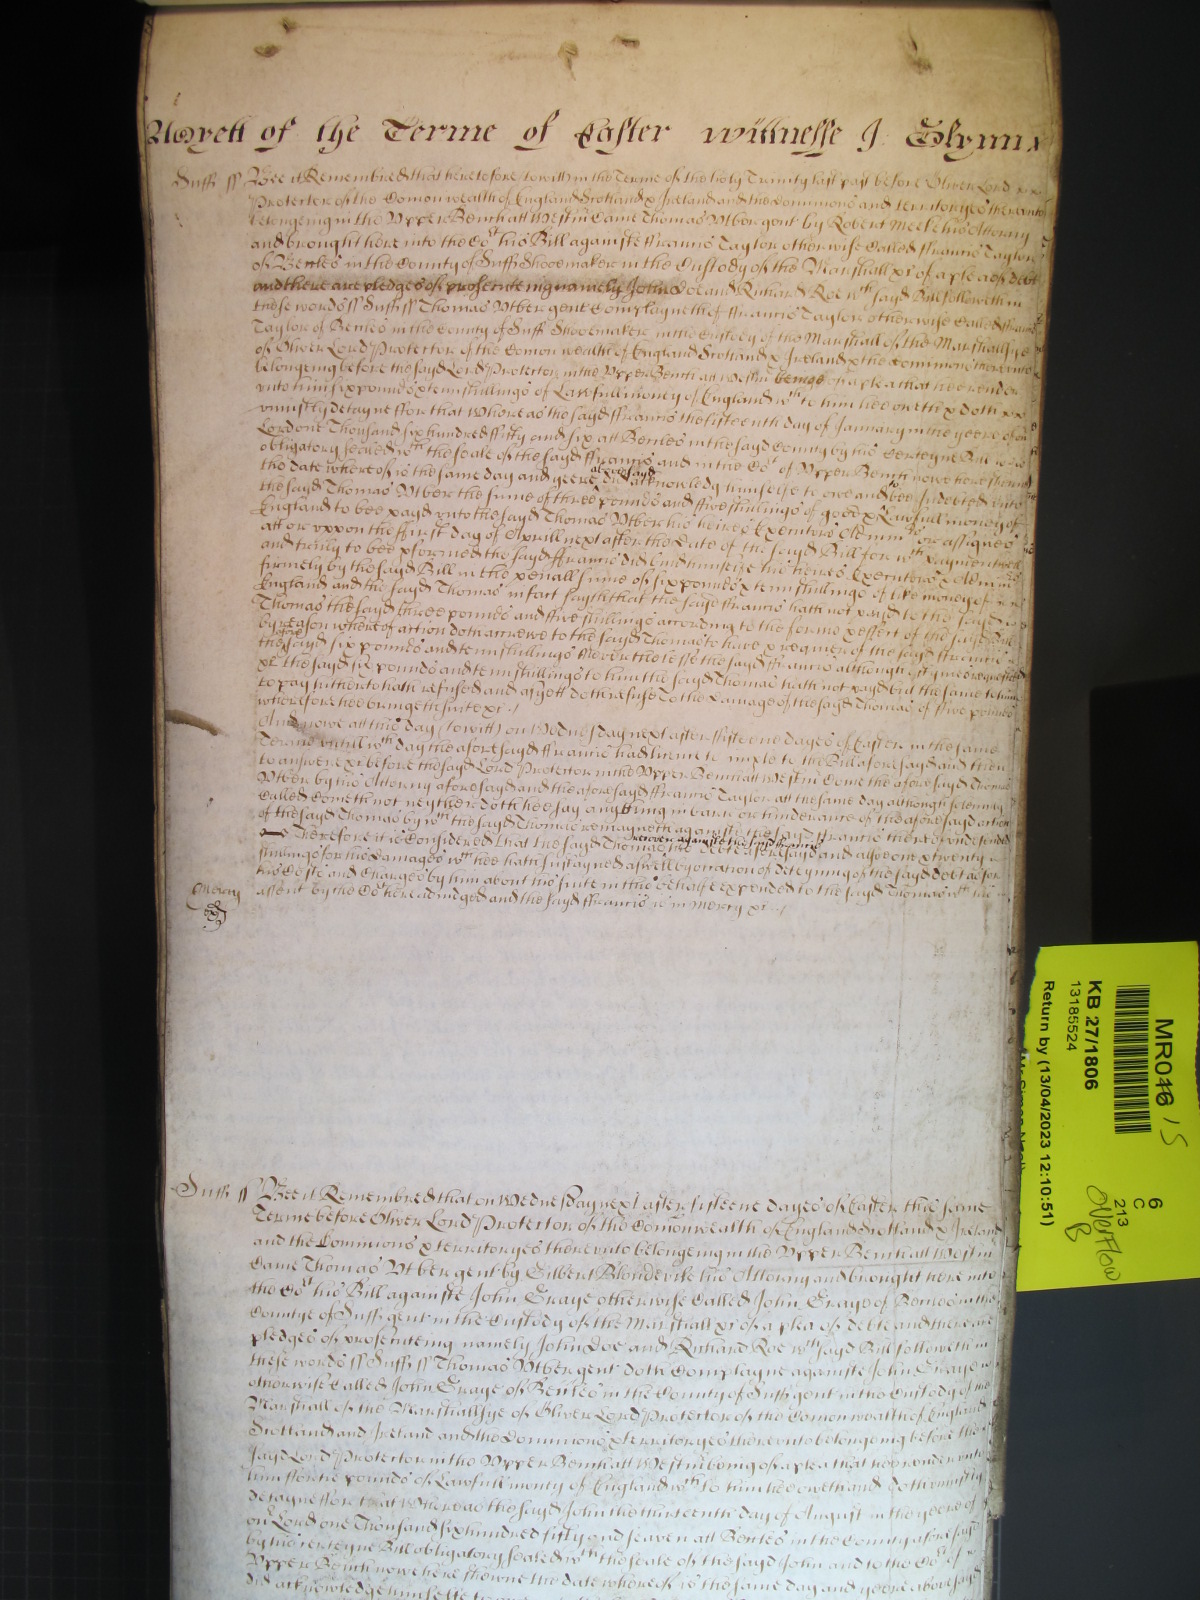 of the Terme of Easter wittnesse J Glynn
Suff ss Bee it Remembred that heretofore (to witt) in the Terme of the holy Trinity last past before Oliver Lord
Protector of the Comonwealth of England Scotland & Ireland and the Dominions and territoryes thereunto
belongeing in the Upper Bench att Westm Came Thomas Utber gent by Robert Meeke his Attorny
and brought here into the Co:t his Bill againste ffrancis Taylor otherwise Called ffrancis Taylor
of Beccles in the County of Suff Shoomaker in the Custody of the Marshall &c of a plea of debt
and there are pledges of prosecuteing namely John Doe and Richard Roe w:ch sayd Bill followeth in
these words ss Suff ss Thomas Utber gent Complayneth of ffrancis Taylor otherwise Called ffrancis
Taylor of Beccles in the County of Suff Shoomaker in the Custody of the Marshall of the Marshallsye
of Oliver Lord Protector of the Comonwealth of England Scotland & Ireland & the Dominions thereunto
belongeing before the sayd Lord Protector in the Upper Bench att Westm being of a plea that hee render
unto him six pounds & tenn shillings of Lawfull money of England w:ch to him hee oweth & doth
uniustly detayne ffor that Whereas the sayd ffrancis the fifteenth day of January in the yeere of our
Lord one Thousand six hundred fifty and six att Beccles in the sayd County by his Certeyne Bill
obligatory sealed w:th the seale of the sayd ffrancis and in the Co:t of Upper Bench nowe here shewne
the date whereof is the same day and yeere abovesayd did acknowledg himselfe to owe and to bee Indebted unto
the sayd Thomas Utber the sume of three pounds and five shillings of good & Lawfull money of
England to bee payd unto the sayd Thomas Utber his heires Executors Adminrs or assignes
att or uppon the ffirst day of Aprill next after the date of the sayd Bill for w:ch payment well
and truly to bee pformed the sayd ffrancis did bind himselfe his heires Executors &
firmely by the sayd Bill in the penall sume of six pounds & tenn shillings of like money of
England and the sayd Thomas in fact sayth that the sayd ffrancis hath not payd to the sayd
Thomas the sayd three pounds and five shillings according to the forme & effect of the sayd Bill
by reason whereof action doth accrewe to the sayd Thomas to have & require of the sayd ffrancis
the afore sayd six pounds and tenn shillings Neverthelesse the sayd ffrancis although often requested
&c the sayd six pounds and tenn shillings to him the sayd Thomas hath not payd but the same to him
to pay hitherto hath refused and as yett doth refuse To the damage of the sayd Thomas of five pounds
wherefore hee bringeth suite &c
And nowe att this day (to witt) on Wednesday next after fifteene dayes of Easter in the same
Terme untill w:ch day the aforesayd ffrancis had licence to imple to the Bill aforesayd and then
to answere &c before the sayd Lord Protector in the Upper Bench att Westm Come the aforesayd Thomas
Utber by his Attorny aforesayd and the aforesayd ffrancis Taylor att the same day although solemnly
Called Cometh not neyther doth hee say any thing in barr or hinderance of the aforesayd action
of the sayd Thomas by w:ch the sayd Thomas remayneth againste the sayd ffrancis there undefended
Therefore it is Considered that the sayd Thomas recover againste the sayd ffrancis his debt aforesayd and alsoe one & twenty
shillings for his damages w:ch hee hath sustayned aswell by occation of deteyning of the sayd debt as for
his Costs and Charges by him about his suite in this behalfe expended to the sayd Thomas w:th his
assent by the Co:t here adiudged and the sayd ffrancis is in Mercy &c
Mercy
Suff ss Bee it Remembred that on Wednesday next after fifteene dayes of Easter this same
Terme before Oliver Lord Protector of the Comonwealth of England Scotland & Ireland
and the Dominions & territoryes thereunto belongeing in the Upper Bench att Westm
Came Thomas Utber gent by Gilbert Blondevile his Attorny and brought here into
the Co:t his Bill againste John Graye otherwise Called John Graye of Beccles in the
Countye of Suff gent in the Custody of the Marshall &c of a plea of debte and there are
pledges of prosecuteing namely John Doe and Richard Roe w:ch sayd Bill followeth in
these words ss Suff ss Thomas Utber gent doth Complayne againste John Graye
otherwise Called John Graye of Beccles in the County of Suff gent in the Custody of the
Marshall of the Marshallsye of Oliver Lord Protector of the Comonwealth of England
Scotland and Ireland and the Dominions & territoryes thereunto belongeing before the
sayd Lord Protector in the Upper Bench att Westm being of a plea that hee render unto
him ffortie pounds of Lawfull money of England w:ch to him hee oweth and doth uniustly
detayne ffor that Whereas the sayd John the thirteenth day of August in the yeere of
our Lord one Thousand six hundred fifty and seaven att Beccles in the County aforesayd
by his certeyne Bill obligatory sealed w:th the seale of the sayd John and to the Co:t of
Upper Bench nowe here shewne the date whereof is the same day and yeere abovesayd
did acknowledge himselfe
MR016 15
KB 27/1806
13185524
Return by (13/04/2023 12:10:51)
6
C
213
Overflow
B